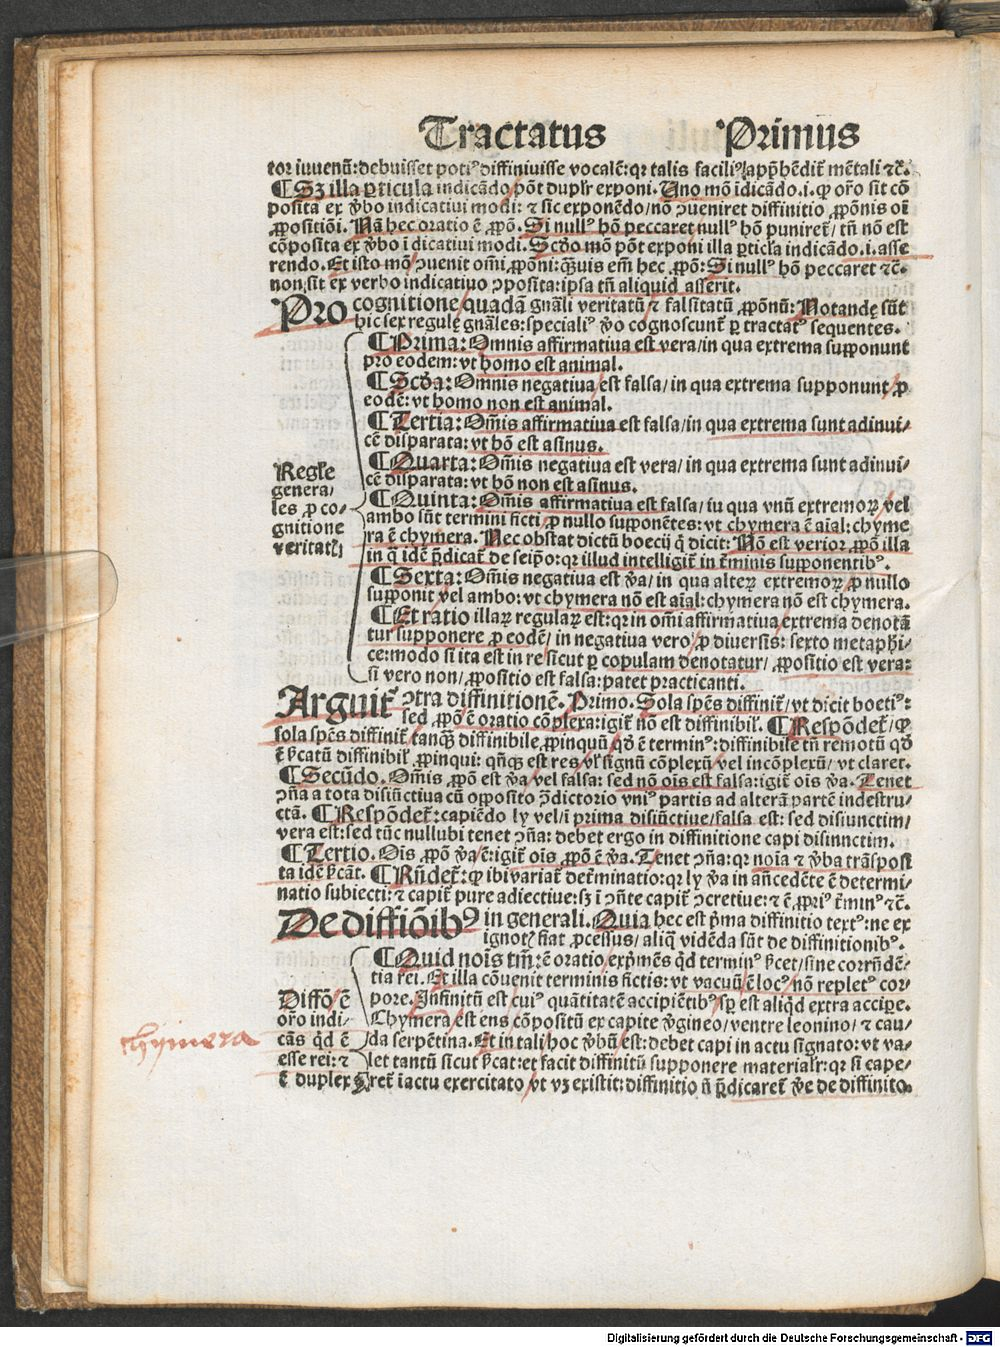 Tractatus Primus
tor iuuenũ: debuisset poti⁹ diffiniuisse vocalẽ: qꝛ talis facili⁹ app̃hẽdit᷒ mẽtali ⁊cͣ.
¶ Sꝫ illa ꝑticula indicãdo põt duplꝛ exponi. Uno mõ ĩdicãdo .i. ꝙ oꝛ̃o sit cõ
posita ex ṽbo indicatiui modi: ⁊ sic exponẽdo/ nõ ↄueniret diffinitio ꝓpõnis oĩ
ꝓpositiõi. Nã hec oratio ẽ ꝓpõ. Si null⁹ hõ peccaret null⁹ hõ puniret᷒/ tñ nõ est
cõposita ex ṽbo ĩdicatiui modi. Scd̃o mõ põt exponi illa ꝑticl̃a indicãdo .i. asse
rendo. Et isto mõ ↄuenit om̃i ꝓpõni: q̃uis em̃ hec ꝓpõ: Si null⁹ hõ peccaret ⁊cͣ.
non sit ex verbo indicatiuo ↄposita: ipsa tñ aliquid asserit.
Pro cognitione quadã gñali veritatũ ⁊ falsitatũ ꝓpõnũ: Notandę sũt
hic sex regulę gñales: speciali⁹ ṽo cognoscunt᷒ ꝑ tractat⁹ sequentes.
¶ Prima: Omnis affirmatiua est vera/ in qua extrema supponunt
pro eodem: vt homo est animal.
¶ Scd̃a: Omnis negatiua est falsa/ in qua extrema supponunt ꝓ
eodẽ: vt homo non est animal.
¶ Tertia: Om̃is affirmatiua est falsa/ in qua extrema sunt adinui/
cẽ disparata: vt hõ est asinus.
¶ Quarta: Om̃is negatiua est vera/ in qua extrema sunt adinui/
cẽ disparata: vt hõ non est asinus.
Regle
genera/
les ꝓ co/
gnitione
veritatꝭ
¶ Quinta: Om̃is affirmatiua est falsa/ iu qua vnũ extremoꝝ/ vel
ambo sũt termini ficti ꝓ nullo supponẽtes: vt chymera ẽ aĩal: chyme
ra ẽ chymera. Nec obstat dictũ boecij q̃ dicit: Nõ est verior ꝓpõ illa
in q̃ idẽ p̃dicat᷒ de seip̃o: qꝛ illud intelligit᷒ in t̃minis supponentib⁹.
¶ Sexta: Om̃is negatiua est ṽa/ in qua alteꝝ extremoꝝ ꝓ nullo
supponit vel ambo: vt chymera nõ est aĩal: chymera nõ est chymera.
¶ Et ratio illaꝝ regulaꝝ est: qꝛ in om̃i affirmatiua extrema denotã
tur supponere ꝓ eodẽ/ in negatiua vero ꝓ diuersis: sexto metaphi/
ce: modo si ita est in re sicut ꝑ copulam denotatur/ ꝓpositio est vera:
si vero non/ ꝓpositio est falsa: patet practicanti.
Arguit᷒ ↄtra diffinitionẽ. Primo. Sola sp̃es diffinit᷒/ vt dicit boeti⁹:
sed ꝓpõ ẽ oratio cõplexa: igit᷒ nõ est diffinibil᷒. ¶ Respõdet᷒/ ꝙ
sola sp̃es diffinit᷒ tanq̃ diffinibile ꝓpinquũ qd̃ ẽ termin⁹: diffinibile tñ remotũ qd̃
ẽ ṽcatũ diffinibil᷒ ꝓpinqui: qñqꝫ est res ṽl signũ cõplexũ vel incõplexũ/ vt claret.
¶ Secũdo. Om̃is ꝓpõ est ṽa vel falsa: sed nõ oĩs est falsa: igit᷒ oĩs ṽa. Tenet
ↄña a tota disiũctiua cũ opposito ↄ̃dictorio vni⁹ partis ad alterã partẽ indestru/
ctã. ¶ Respõdet᷒: capiẽdo ly vel/ ĩ prima disiũctiue/ falsa est: sed disiunctim/
vera est: sed tũc nullubi tenet ↄña: debet ergo in diffinitione capi disiunctim.
¶ Tertio. Oĩs ꝓpõ ṽa ẽ: igit᷒ oĩs ꝓpõ ẽ ṽa. Tenet ↄña: qꝛ noĩa ⁊ ṽba trãspost
ta idẽ ṽcãt. ¶ Rñdet᷒: ꝙ ibi variat᷒ det̃minatio: qꝛ ly ṽa in añcedẽte ẽ determi/
natio subiecti: ⁊ capit᷒ pure adiectiue: sꝫ ĩ ↄñte capit᷒ ↄcretiue: ⁊ ẽ ꝓpri⁹ t̃min⁹ ⁊cͣ.
De diffiõib⁹ in generali. Quia hec est p̃ma diffinitio text⁹: ne ex
ignotꝭ fiat ꝓcessus/ aliq̃ vidẽda sũt de diffinitionib⁹.
¶ Quid noĩs tm̃: ẽ oratio exp̃mẽs qd̃ termin⁹ ṽcet/ sine corrñdẽ/
tia rei. Et illa cõuenit terminis fictis: vt vacuũ ẽ loc⁹ nõ replet⁹ cor/
Diffõ ẽ
oꝛ̃o indi/
cãs qd̃ ẽ
esse rei: ⁊
ẽ duplex
pore. Infinitũ est cui⁹ quãtitatẽ accipiẽtib⁹ sp̃ est aliqd̃ extra accip̃e.
Chymera est ens cõpositũ ex capite ṽgineo/ ventre leonino/ ⁊ cau/
da serpẽtina. Et in tali hoc ṽbũ est: debet capi in actu signato: vt va/
let tantũ sicut ṽcat: et facit diffinitũ supponere materialꝛ: qꝛ si cape/
ret᷒ ĩ actu exercitato/ vt vꝫ existit: diffinitio ñ p̃dicaret᷒ ṽe de diffinito.
chymera
Digitalisierung gefördert durch die Deutsche Forschungsgemeinschaft - DFG